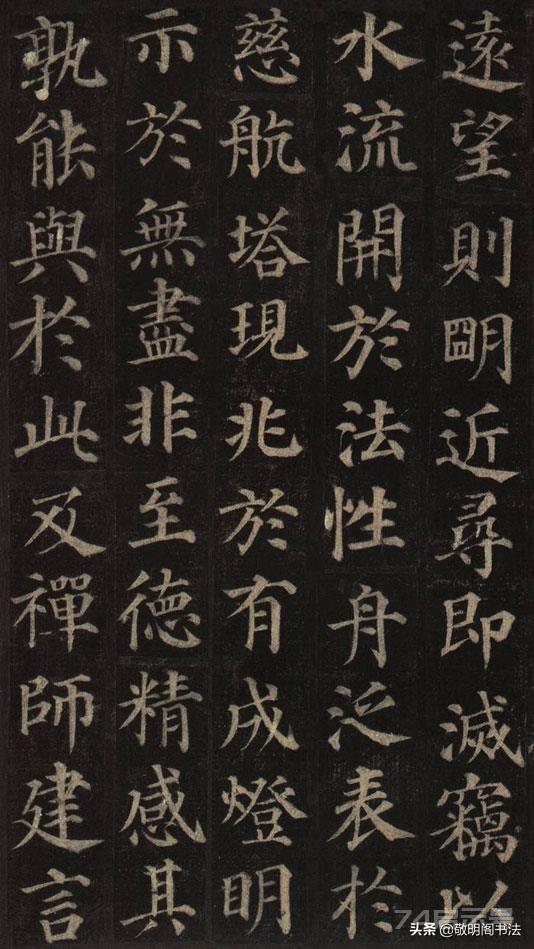 遠望則明近尋即滅竊以
水流開於法性舟泛表於
慈航塔現兆於有成燈明
示於無盡非至德精感其
孰能與於此及禪師建言
头条 @敬明阁书法